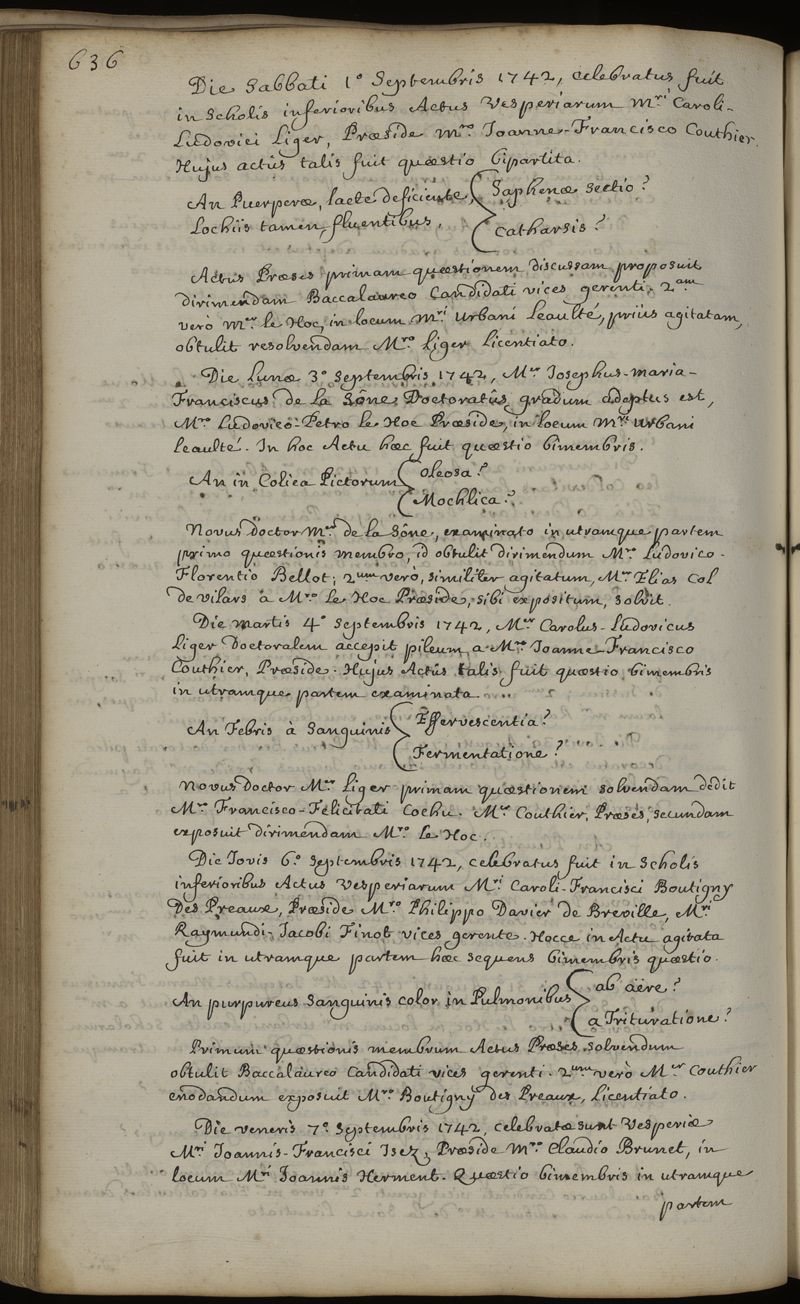 636
Die Sabbati 1° Septembris 1742, celebratus fuit
in Scholis inferioribus Actus Vesperiarum Mri Caroli-
Ludovici Liger, Præside Mro Joanne-Francisco Couthier.
Hujus actûs talis fuit quæstio bipartita.
An Puerperæ, lacte deficiente, { Saphenæ sectio?
Lochiis tamen fluentibus, { Catharsis?
Actûs Præses primam quæstionem discussam proposuit
dirimendam Baccalaureo Candidati vices gerenti, 2am
verò Mer le Hoc, in locum Mri Urbani Leaulté, priùs agitatam,
obtulit resolvendam Mro Liger Licentiato.
Die Lunæ 3° Septembris 1742, Mer Josephus-maria-
Franciscus de La Sône Doctoratûs gradum adeptus est,
Mro Ludovico-Petro le Hoc Præside, in locum Mri Urbani
Leaulté. In hoc Actu hæc fuit quæstio bimembris.
An in Colica Pictorum { Oleosa?
{ Mochlica?
Novus doctor Mer de la Sône, examinato in utramque partem
primo quæstionis membro, id obtulit dirimendum Mro Ludovico-
Florentio Bellot; 2um verò, similiter agitatum, Mer Elias Col
de vilars à Mro Le Hoc Præside, sibi expositum, solvit.
Die Martis 4° Septembris 1742, Mer Carolus-Ludovicus
Liger Doctoralem accepit pileum a Mro Joanne-Francisco
Couthier, Præside. Hujus Actûs talis fuit quæstio bimembris
in utramque partem examinata.
An Febris à Sanguinis { Effervescentia?
{ Fermentatione?
Novus doctor Mer Liger primam quæstionem solvendam dedit
Mro Francisco-Felicitati Cochu. Mer Couthier, Præses, secundam
exposuit dirimendam Mro Le Hoc.
Die Jovis 6° Septembris 1742, celebratus fuit in Scholis
inferioribus Actus Vesperiarum Mri Caroli-Francisci Boutigny
Des Preaux, Præside Mro Philippo Davier de Breville, Mri
Raymundi-Jacobi Finot vices gerente. Hocce in Actu agitata
fuit in utramque partem hæc sequens bimembris quæstio.
An purpureus Sanguinis color in Pulmonibus { ab aëre?
{ a Trituratione?
Primum quæstionis membrum Actûs Præses solvendum
obtulit Baccalaureo Candidati vices gerenti. 2um verò Mer Couthier
enodandum exposuit Mro Boutigny des Preaux, Licentiato.
Die veneris 7° Septembris 1742, celebratæ sunt Vesperiæ
Mri Joannis-Francisci Isez, Præside Mro Claudio Brunet, in
locum Mri Joannis Herment. Quæstio bimembris in utramque
partem